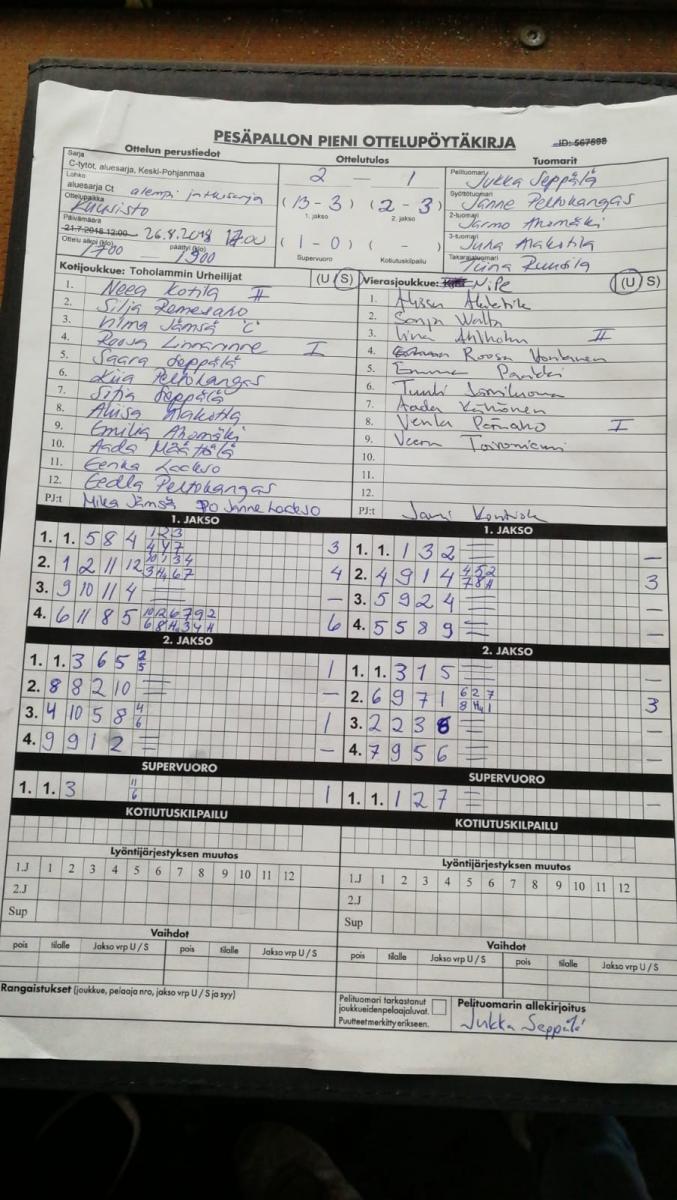 PESÄPALLON PIENI OTTELUPÖYTÄKIRJA
ID: 567698
Ottelun perustiedot
Ottelutulos
Tuomarit
Sarja
C-tytöt, aluesarja, Keski-Pohjanmaa
Lohko
aluesarja Ct alempi jatkosarja
Ottelupaikka
Kuusisto
Päivämäärä
21.7.2018 12:00 26.8.2018 17.00
Ottelu alkoi (klo) päättyi (klo)
1700 — 1900
2 — 1
(13 - 3) (2 - 3)
1. jakso 2. jakso
(1 - 0) ( - )
Supervuoro Kotiutuskilpailu
Pelituomari
Jukka Seppälä
Syöttötuomari
Janne Peltokangas
2-tuomari
Jarmo Ahomäki
3-tuomari
Juha Alakotila
Takarajatuomari
Tiina Ruuska
Kotijoukkue: Toholammin Urheilijat (U S)
1. Neea Kotila II
2. Silja
3. Vilma Jämsä C
4. Roosa I
5. Saara Seppälä
6. Kiia Peltokangas
7. Silja Seppälä
8. Aliisa Alakotila
9. Emilia Ahomäki
10. Aada Määttälä
11. Eerika Laakso
12. Eedla Peltokangas
PJ:t Mika Jämsä PO Janne Laakso
Vierasjoukkue: NiPe (U S)
1.
2. Sonja
3. Iina Ahlholm II
4. Roosa
5. Emma
6. Tuuli
7. Aada Kähönen
8. Venla I
9. Veera Toivoniemi
10.
11.
12.
PJ:t Jani
1. JAKSO
1. 1. 5 8 4 1 2 3 4 4 7 3
2. 1 2 11 12 4
3. 9 10 11 4 —
4. 6 11 8 5 6
1. JAKSO
1. 1. 1 3 2 —
2. 4 9 1 4 3
3. 5 9 2 4 —
4. 5 5 8 9 —
2. JAKSO
1. 1. 3 6 5 2 5 1
2. 8 8 2 10 —
3. 4 10 5 8 4 6 1
4. 9 9 1 2 —
2. JAKSO
1. 1. 3 1 5 —
2. 6 9 7 1 3
3. 2 2 3 —
4. 7 9 5 6 —
SUPERVUORO
1. 1. 3 11 6 1
SUPERVUORO
1. 1. 1 2 7 —
KOTIUTUSKILPAILU
KOTIUTUSKILPAILU
Lyöntijärjestyksen muutos
1.J 1 2 3 4 5 6 7 8 9 10 11 12
2.J
Sup
Lyöntijärjestyksen muutos
1.J 1 2 3 4 5 6 7 8 9 10 11 12
2.J
Sup
Vaihdot
pois tilalle Jakso vrp U / S pois tilalle Jakso vrp U / S
Vaihdot
pois tilalle Jakso vrp U / S pois tilalle Jakso vrp U / S
Rangaistukset (joukkue, pelaaja nro, jakso vrp U / S ja syy)
Pelituomari tarkastanut
joukkueidenpelaajaluvat.
Puutteet merkitty erikseen.
Pelituomarin allekirjoitus
Jukka Seppälä